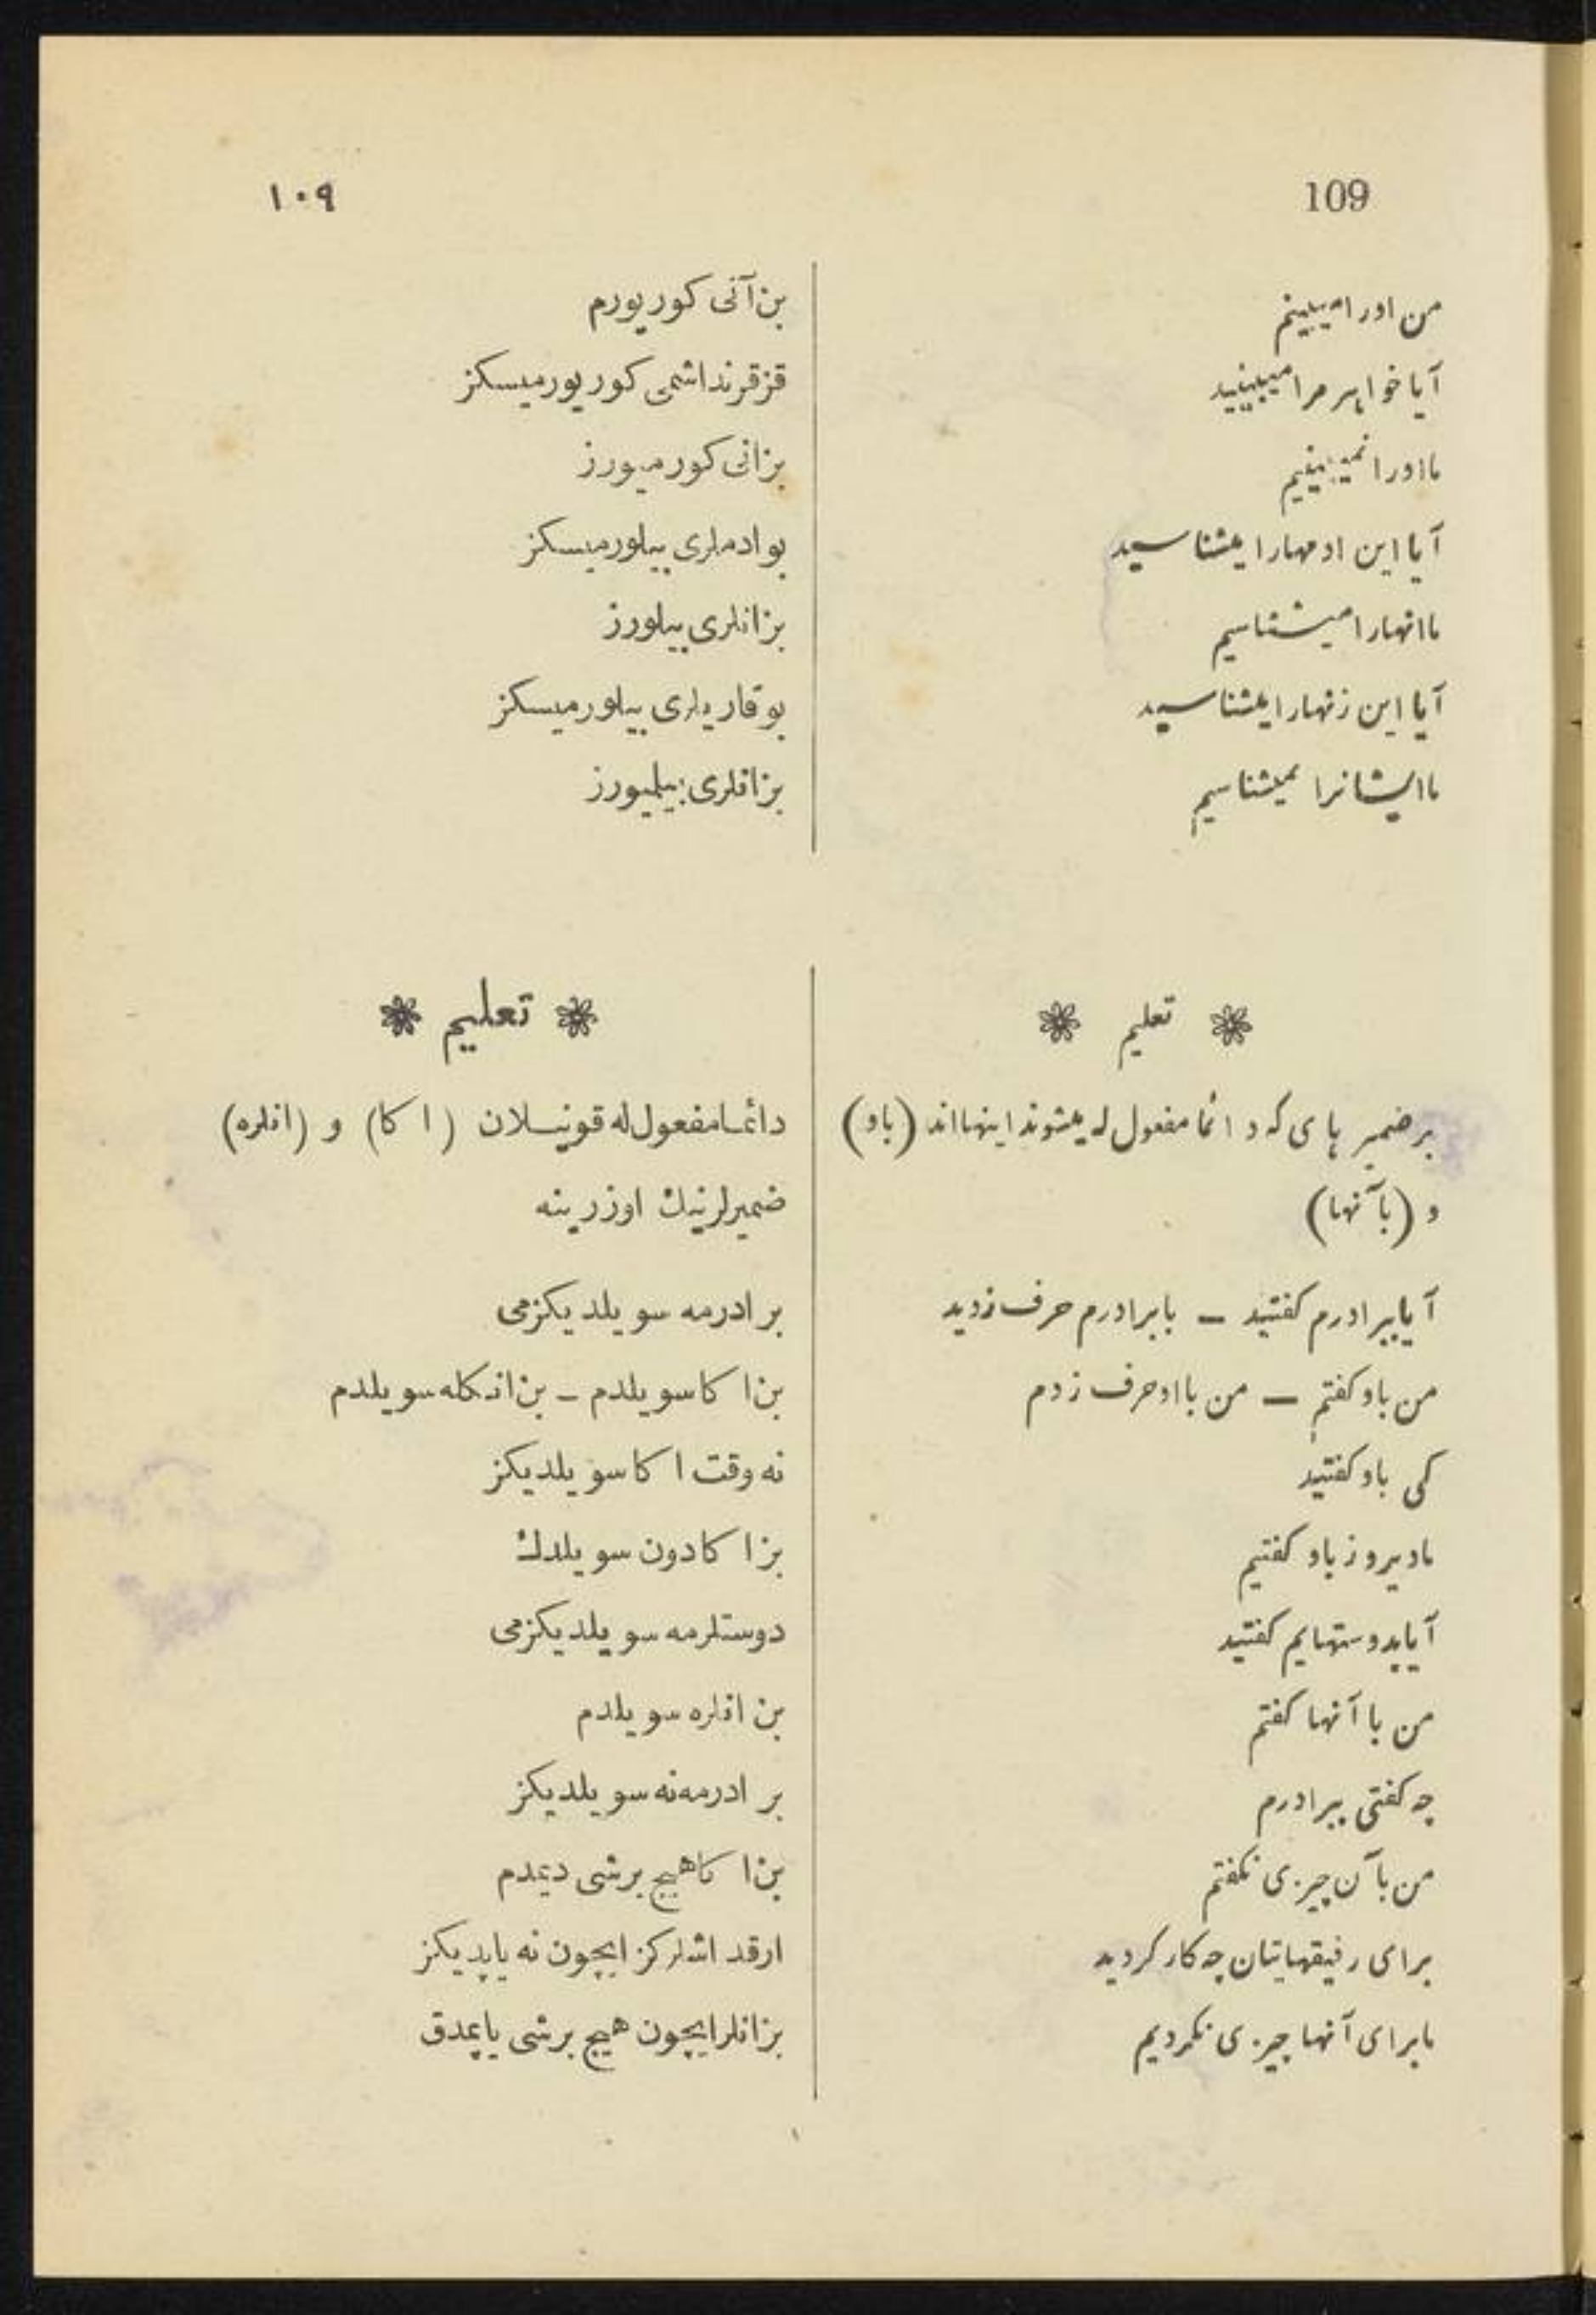 109
١٠٩
من اورا میبینم
آیا خواهر مرا میبینید
ما اورا نمیبینیم
آیا این ادمهارا میشناسید
ما انهارا میشناسیم
آیا این زنهارا میشناسید
ما ایشانرا نمیشناسیم
بن آنی كوریورم
قزقرنداشمی كوریورمیسكز
بز انی كورمیورز
بو ادملری بیلورمیسكز
بز انلری بیلورز
بو قاریلری بیلورمیسكز
بز انلری بیلمیورز
❊ تعلیم ❊
بر ضمیر های كه دائما مفعول له میشوند اینها اند (باو)
و (بآنها)
آیا ببرادرم كفتید — با برادرم حرف زدید
من باو كفتم — من با او حرف زدم
كی باو كفتید
ما دیروز باو كفتیم
آیا بدوستهایم كفتید
من با آنها كفتم
چه كفتی ببرادرم
من بآن چیزی نكفتم
برای رفیقهایتان چه كار كردید
ما برای آنها چیزی نكردیم
❊ تعلیم ❊
دائما مفعول له قونیلان (اكا) و (انلره)
ضمیرلرینك اوزرینه
برادرمه سویلدیكزمی
بن اكا سویلدم — بن انكله سویلدم
نه وقت اكا سویلدیكز
بز اكا دون سویلدك
دوستلرمه سویلدیكزمی
بن انلره سویلدم
برادرمه نه سویلدیكز
بن اكا هیچ برشی دیمدم
ارقداشلركز ایچون نه یاپدیكز
بز انلر ایچون هیچ برشی یاپمدق